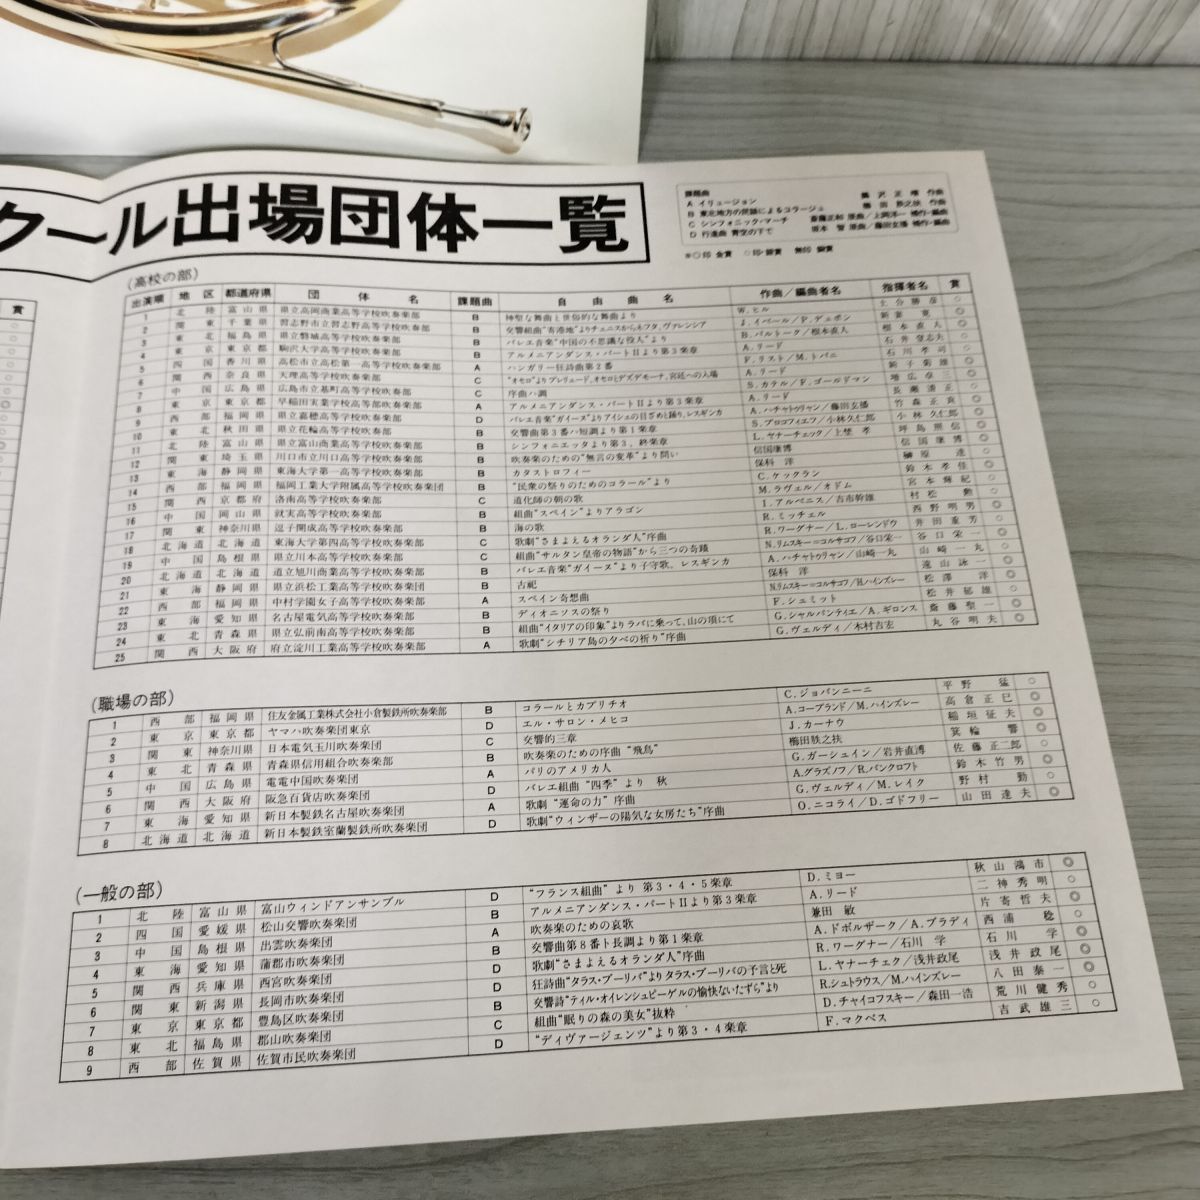 クール出場団体一覧
課題曲
A イリュージョン
B 東北地方の民謡によるコラージュ
C シンフォニック・マーチ
D 行進曲 青空の下で
賞
(高校の部)
出演順 地区 都道府県 団体名 課題曲 自由曲名 作曲/編曲者名 指揮者名 賞
1 北陸 富山県 県立高岡商業高等学校吹奏楽部 B 神聖な舞曲と世俗的な舞曲より W.ヒル
2 関東 千葉県 習志野市立習志野高等学校吹奏楽部 B 交響組曲"寄港地"よりチュニスからネフタ、ヴァレンシア J.イベール/F.デュポン
3 東北 福島県 県立磐城高等学校吹奏楽部 B バレエ音楽"中国の不思議な役人"より B.バルトーク/根本直人 根本直人
4 東京 東京都 駒沢大学高等学校吹奏楽部 B アルメニアンダンス・パートIIより第3楽章 A.リード
5 四国 香川県 高松市立高松第一高等学校吹奏楽部 A ハンガリー狂詩曲第2番 F.リスト/M.トバニ 石川孝司
6 関西 奈良県 天理高等学校吹奏楽部 C "オセロ"よりプレリュード、オセロとデズデモーナ、宮廷への入場 A.リード 新子菊雄
7 中国 広島県 広島市立基町高等学校吹奏楽部 C 序曲ハ調 S.カテル/F.ゴールドマン
8 東京 東京都 早稲田実業学校高等部吹奏楽部 A アルメニアンダンス・パートIIより第3楽章 A.リード
9 西部 福岡県 県立嘉穂高等学校吹奏楽部 D バレエ音楽"ガイーヌ"よりアイシェの目ざめと踊り、レスギンカ A.ハチャトゥリャン/藤田玄播 竹森正貢
10 東北 秋田県 県立花輪高等学校吹奏楽部 B 交響曲第3番ハ短調より第1楽章 S.プロコフィエフ/小林久仁郎 小林久仁郎
11 北陸 富山県 県立富山商業高等学校吹奏楽部 B シンフォニエッタより第3、終楽章 L.ヤナーチェック/上埜孝 坪島照信
12 関東 埼玉県 川口市立川口高等学校吹奏楽部 B 吹奏楽のための"無言の変革"より問い 信国康博 信国康博
13 東海 静岡県 東海大学第一高等学校吹奏楽部 B カタストロフィー 保科洋 榊原達
14 西部 福岡県 福岡工業大学附属高等学校吹奏楽団 B "民衆の祭りのためのコラール"より C.ケックラン 鈴木孝佳
15 関西 京都府 洛南高等学校吹奏楽部 C 道化師の朝の歌 M.ラヴェル/オドム 宮本輝紀
16 中国 岡山県 就実高等学校吹奏楽部 B 組曲"スペイン"よりアラゴン I.アルベニス/吉市幹雄 村松勲
17 関東 神奈川県 逗子開成高等学校吹奏楽部 B 海の歌 R.ミッチェル 西野明男
18 北海道 北海道 東海大学第四高等学校吹奏楽部 C 歌劇"さまよえるオランダ人"序曲 R.ワーグナー/L.ローレンドウ 井田重芳
19 中国 島根県 県立川本高等学校吹奏楽部 C 組曲"サルタン皇帝の物語"から三つの奇蹟 N.リムスキー=コルサコフ/谷口栄一 谷口栄一
20 北海道 北海道 道立旭川商業高等学校吹奏楽部 B バレエ音楽"ガイーヌ"より子守歌、レスギンカ A.ハチャトゥリャン/山崎一丸 山崎一丸
21 東海 静岡県 県立浜松工業高等学校吹奏楽団 B 古祀 保科洋 遠山詠一
22 西部 福岡県 中村学園女子高等学校吹奏楽部 A スペイン奇想曲 N.リムスキー=コルサコフ/H.ハインズレー 松澤洋
23 東海 愛知県 名古屋電気高等学校吹奏楽部 B ディオニソスの祭り F.シュミット 松井郁雄
24 東北 青森県 県立弘前南高等学校吹奏楽部 B 組曲"イタリアの印象"よりラバに乗って、山の頂にて G.シャルパンティエ/A.ギロンス 斎藤聖一
25 関西 大阪府 府立淀川工業高等学校吹奏楽部 A 歌劇"シチリア島の夕べの祈り"序曲 G.ヴェルディ/木村吉宏 丸谷明夫
(職場の部)
1 西部 福岡県 住友金属工業株式会社小倉製鉄所吹奏楽部 B コラールとカプリチオ C.ジョバンニーニ 平野猛 ○
2 東京 東京都 ヤマハ吹奏楽団東京 D エル・サロン・メヒコ A.コープランド/M.ハインズレー 高倉正巳 ◎
3 関東 神奈川県 日本電気玉川吹奏楽団 C 交響的三章 J.カーナウ 稲垣征夫 ◎
4 東北 青森県 青森県信用組合吹奏楽部 B 吹奏楽のための序曲"飛鳥" 櫛田胅之扶 箕輪響 ◎
5 中国 広島県 電電中国吹奏楽団 A パリのアメリカ人 G.ガーシュイン/岩井直溥 佐藤正二郎 ○
6 関西 大阪府 阪急百貨店吹奏楽団 D バレエ組曲"四季"より 秋 A.グラズノフ/R.バンクロフト 鈴木竹男 ◎
7 東海 愛知県 新日本製鉄名古屋吹奏楽団 A 歌劇"運命の力"序曲 G.ヴェルディ/M.レイク 野村勤 ○
8 北海道 北海道 新日本製鉄室蘭製鉄所吹奏楽団 D 歌劇"ウィンザーの陽気な女房たち"序曲 O.ニコライ/D.ゴドフリー 山田達夫 ◎
(一般の部)
1 北陸 富山県 富山ウィンドアンサンブル D "フランス組曲"より 第3・4・5楽章 D.ミヨー 秋山鴻市 ◎
2 四国 愛媛県 松山交響吹奏楽団 B アルメニアンダンス・パートIIより第3楽章 A.リード 二神秀明 ○
3 中国 島根県 出雲吹奏楽団 A 吹奏楽のための哀歌 兼田敏 片寄哲夫 ◎
4 東海 愛知県 蒲郡市吹奏楽団 B 交響曲第8番ト長調より第1楽章 A.ドボルザーク/A.ブラディ 西浦稔 ○
5 関西 兵庫県 西宮吹奏楽団 D 歌劇"さまよえるオランダ人"序曲 R.ワーグナー/石川学 石川学 ◎
6 関東 新潟県 長岡市吹奏楽団 D 狂詩曲"タラス・ブーリバ"よりタラス・ブーリバの予言と死 L.ヤナーチェク/浅井政尾 浅井政尾 ○
7 東京 東京都 豊島区吹奏楽団 B 交響詩"ティル・オイレンシュピーゲルの愉快ないたずら"より R.シュトラウス/M.ハインズレー 八田泰一 ◎
8 東北 福島県 郡山吹奏楽団 C 組曲"眠りの森の美女"抜粋 D.チャイコフスキー/森田一浩 荒川健秀 ○
9 西部 佐賀県 佐賀市民吹奏楽団 D "ディヴァージェンツ"より第3・4楽章 F.マクベス 吉武雄三 ○